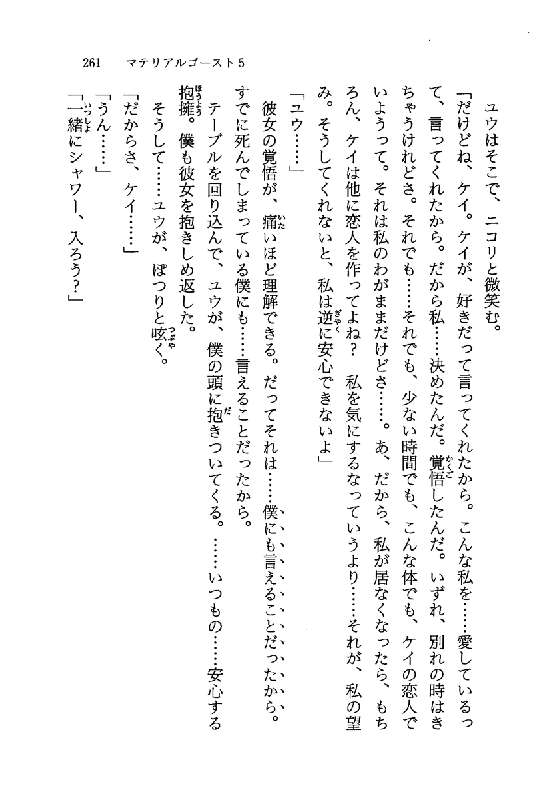 261　マテリアルゴースト5
　ユウはそこで、ニコリと微笑む。
「だけどね、ケイ。ケイが、好きだって言ってくれたから。こんな私を……愛しているっ
て、言ってくれたから。だから私……決めたんだ。覚悟したんだ。いずれ、別れの時はき
ちゃうけれどさ。それでも……それでも、少ない時間でも、こんな体でも、ケイの恋人で
いようって。それは私のわがままだけどさ……。あ、だから、私が居なくなったら、もち
ろん、ケイは他に恋人を作ってよね？　私を気にするなっていうより……それが、私の望
み。そうしてくれないと、私は逆に安心できないよ」
「ユウ……」
　彼女の覚悟が、痛いほど理解できる。だってそれは……僕にも言えることだったから。
すでに死んでしまっている僕にも……言えることだったから。
　テーブルを回り込んで、ユウが、僕の頭に抱きついてくる。……いつもの……安心する
抱擁。僕も彼女を抱きしめ返した。
　そうして……ユウが、ぽつりと呟く。
「だからさ、ケイ……」
「うん……」
「一緒にシャワー、入ろう？」